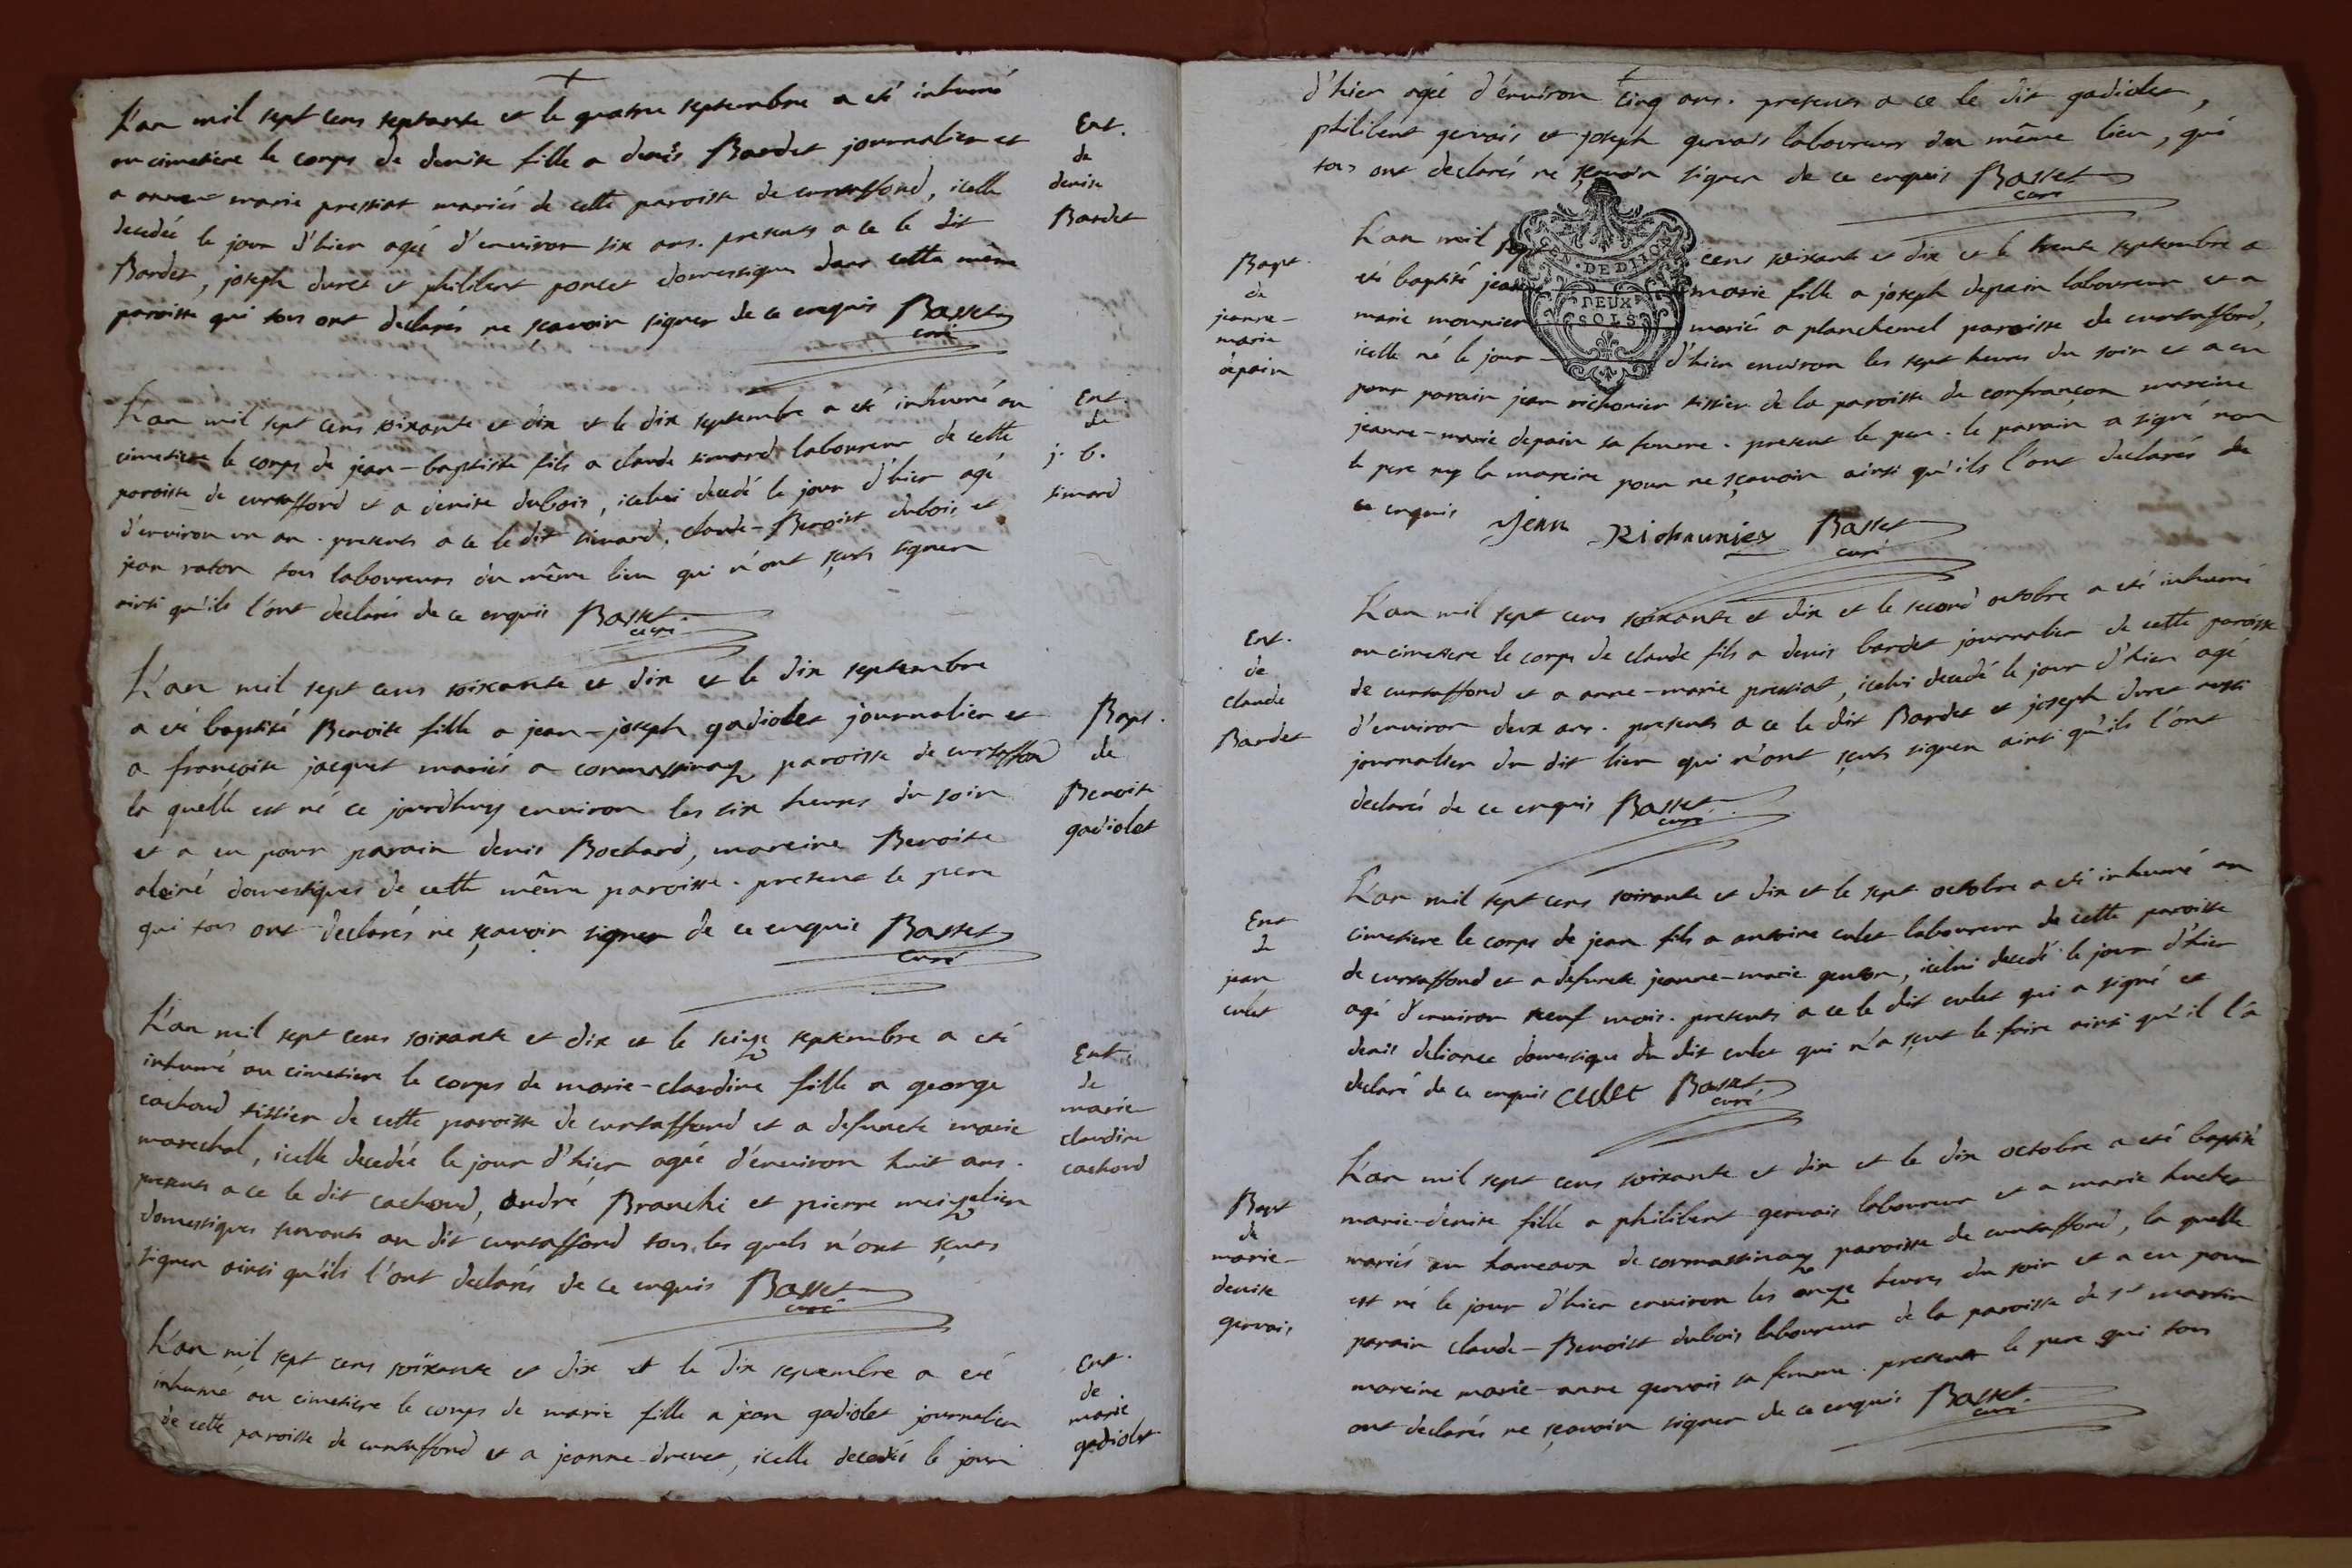 L'an mil sept cens septante et le quatre septembre a eté inhumé
au cimetiere le corps de denise fille a denis Bardet journalier et
a anne marie pressiat mariés de cette paroisse de curtaffond, icelle
decedée le jour d'hier agée d'environ six ans. presents a ce le dit
Bardet, joseph duret et philibert poncet domestiques dans cette même
paroisse qui tous ont declarés ne sçavoir signer de ce enquis Basset
curé
Ent.
de
denise
Bardet
L'an mil sept cens soixante et dix et le dix septembre a eté inhumé au
cimetiere le corps de jean-baptiste fils a claude simard laboureur de cette
paroisse de curtaffond et a denise dubois, icelui decedé le jour d'hier agé
d'environ un an. presents a ce le dit simard, claude-Benoist dubois et
jean raton tous laboureurs du même lieu qui n'ont sçuts signer
ainsi qu'ils l'ont declarés de ce enquis Basset
curé
Ent.
de
j. b.
simard
L'an mil sept cens soixante et dix et le dix septembre
a eté baptisé Benoite fille a jean-joseph gadiolet journalier et
a françoise jacquet mariés a cormassinaz paroisse de curtaffond
la quelle est né ce jourdhuy environ les six heures du soir
et a eu pour parain denis Bochard, mareine Benoite
aloiné domestiques de cette même paroisse. present le pere
qui tous ont declarés ne sçavoir signer de ce enquis Basset
curé
Bapt.
de
Benoite
gadiolet
L'an mil sept cens soixante et dix et le seize septembre a eté
inhumé au cimetiere le corps de marie-claudine fille a george
cachoud tissier de cette paroisse de curtaffond et a defuncte marie
marechal, icelle decedée le jour d'hier agée d'environ huit ans.
presents a ce le dit cachoud, andré Branchi et pierre meizelier
domestiques servants au dit curtaffond tous les quels n'ont sçuts
signer ainsi qu'ils l'ont declarés de ce enquis Basset
curé
Ent.
de
marie
claudine
cachoud
L'an mil sept cens soixante et dix et le dix septembre a eté
inhumé au cimetiere le corps de marie fille a jean gadiolet journalier
de cette paroisse de curtaffond et a jeanne drevet, icelle decedés le jour
Ent.
de
marie
gadiolet
d'hier agée d'environ cinq ans. presents a ce le dit gadiolet,
philibert gervais et joseph gervais laboureurs du même lieu, qui
tous ont declarés ne sçavoir signer de ce enquis Basset
curé
GEN. DE DIJON
DEUX
SOLS
Bapt.
de
jeanne-
marie
depain
L'an mil sept cens soixante et dix et le trente septembre a
eté baptisé jeanne marie fille a joseph depain laboureur et a
marie mounier mariés a planchemel paroisse de curtaffond,
icelle né le jour d'hier environ les sept heures du soir et a eu
pour parain jean richonier tissier de la paroisse de confrançon mareine
jeanne-marie depain sa femme. present le pere. le parain a signé non
le pere ny la mareine pour ne sçavoir ainsi qu'ils l'ont declarés de
ce enquis Jean Richaunier Basset
curé
Ent.
de
claude
Bardet
L'an mil sept cens soixante et dix et le second octobre a eté inhumé
au cimetiere le corps de claude fils a denis bardet journalier de cette paroisse
de curtaffond et a anne-marie pressiat, icelui decedé le jour d'hier agé
d'environ deux ans. presents a ce le dit Bardet et joseph duret aussi
journalier du dit lieu qui n'ont sçuts signer ainsi qu'ils l'ont
declarés de ce enquis Basset
curé
Ent
de
jean
culet
L'an mil sept cens soixante et dix et le sept octobre a eté inhumé au
cimetiere le corps de jean fils a antoine culet laboureur de cette paroisse
de curtaffond et a defuncte jeanne-marie genton, icelui decedé le jour d'hier
agé d'environ neuf mois. presents a ce le dit culet qui a signé et
denis deliance domestique du dit culet qui n'a sçut le faire ainsi qu'il l'a
declaré de ce enquis Cullet Basset
curé
Bapt
de
marie-
denise
gervais
L'an mil sept cens soixante et dix et le dix octobre a eté baptisé
marie-denise fille a philibert gervais laboureur et a marie huchet
mariés au hameaux de cormassinaz paroisse de curtaffond, la quelle
est né le jour d'hier environ les onze heures du soir et a eu pour
parain claude-Benoist dubois laboureur de la paroisse de st martin
mareine marie-anne gervais sa femme. present le pere qui tous
ont declarés ne sçavoir signer de ce enquis Basset
curé